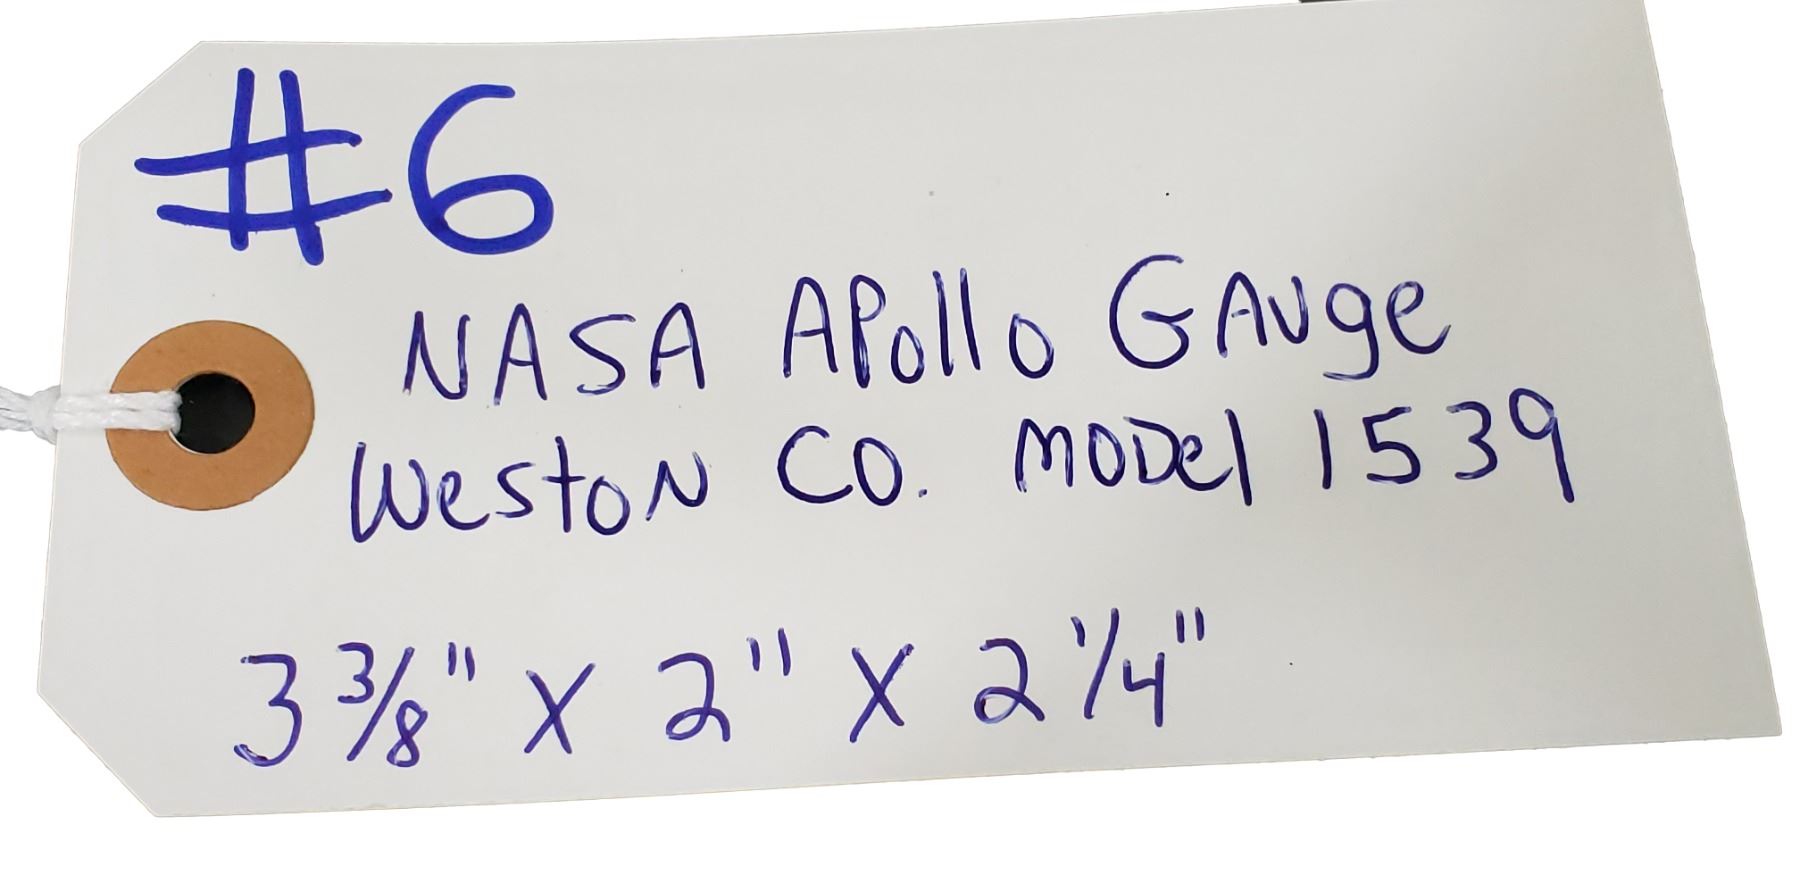 #6
NASA APollo GAuge
WestoN CO. MODel 1539
3 3/8" X 2" X 2 1/4"